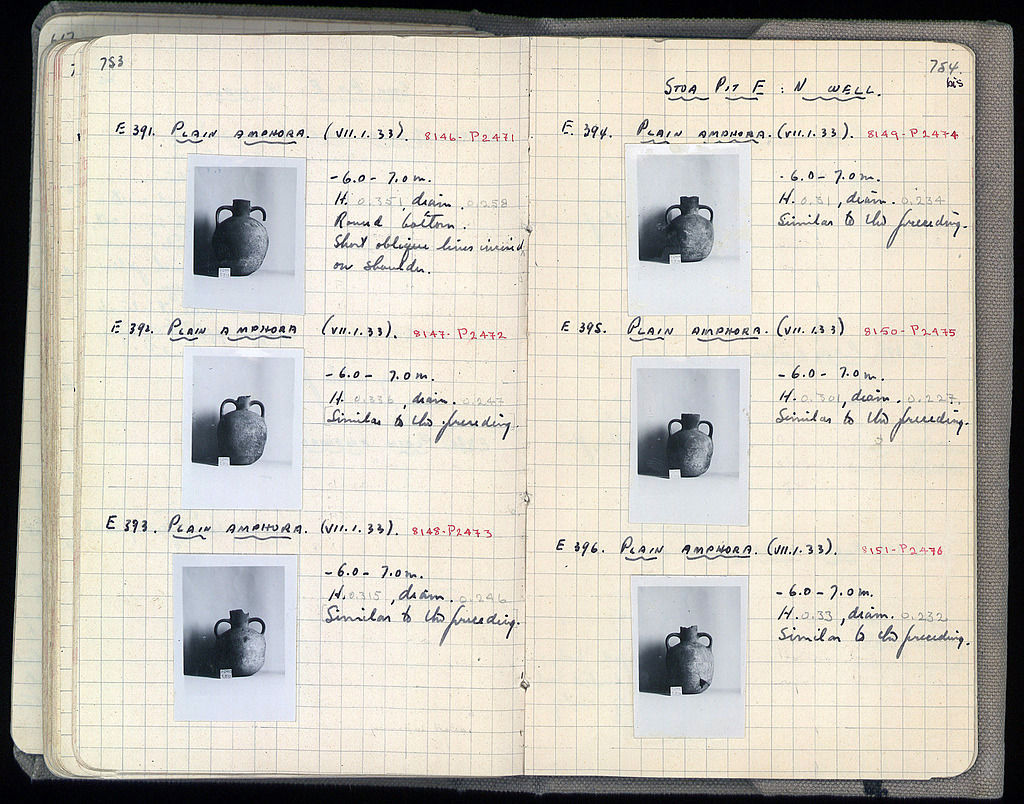 753
E 391. PLAIN AMPHORA. (VII.1.33). 8146-P2471
-6.0 - 7.0 m.
H. 0.351, diam. 0.258
Round bottom.
Short oblique lines incised
on shoulder.
E 392. PLAIN AMPHORA (VII.1.33). 8147-P2472
-6.0 - 7.0 m.
H. 0.336, diam. 0.247
Similar to the preceding.
E 393. PLAIN AMPHORA. (VII.1.33). 8148-P2473
-6.0 - 7.0 m.
H. 0.315, diam. 0.246
Similar to the preceding.
754.
bis
STOA PIT E : N WELL.
E. 394. PLAIN AMPHORA. (VII.1.33). 8149-P2474
-6.0 - 7.0 m.
H. 0.31, diam. 0.234
Similar to the preceding.
E 395. PLAIN AMPHORA. (VII.1.33) 8150-P2475
-6.0 - 7.0 m.
H. 0.301, diam. 0.227
Similar to the preceding.
E 396. PLAIN AMPHORA. (VII.1.33). 8151-P2476
-6.0 - 7.0 m.
H. 0.33, diam. 0.232
Similar to the preceding.